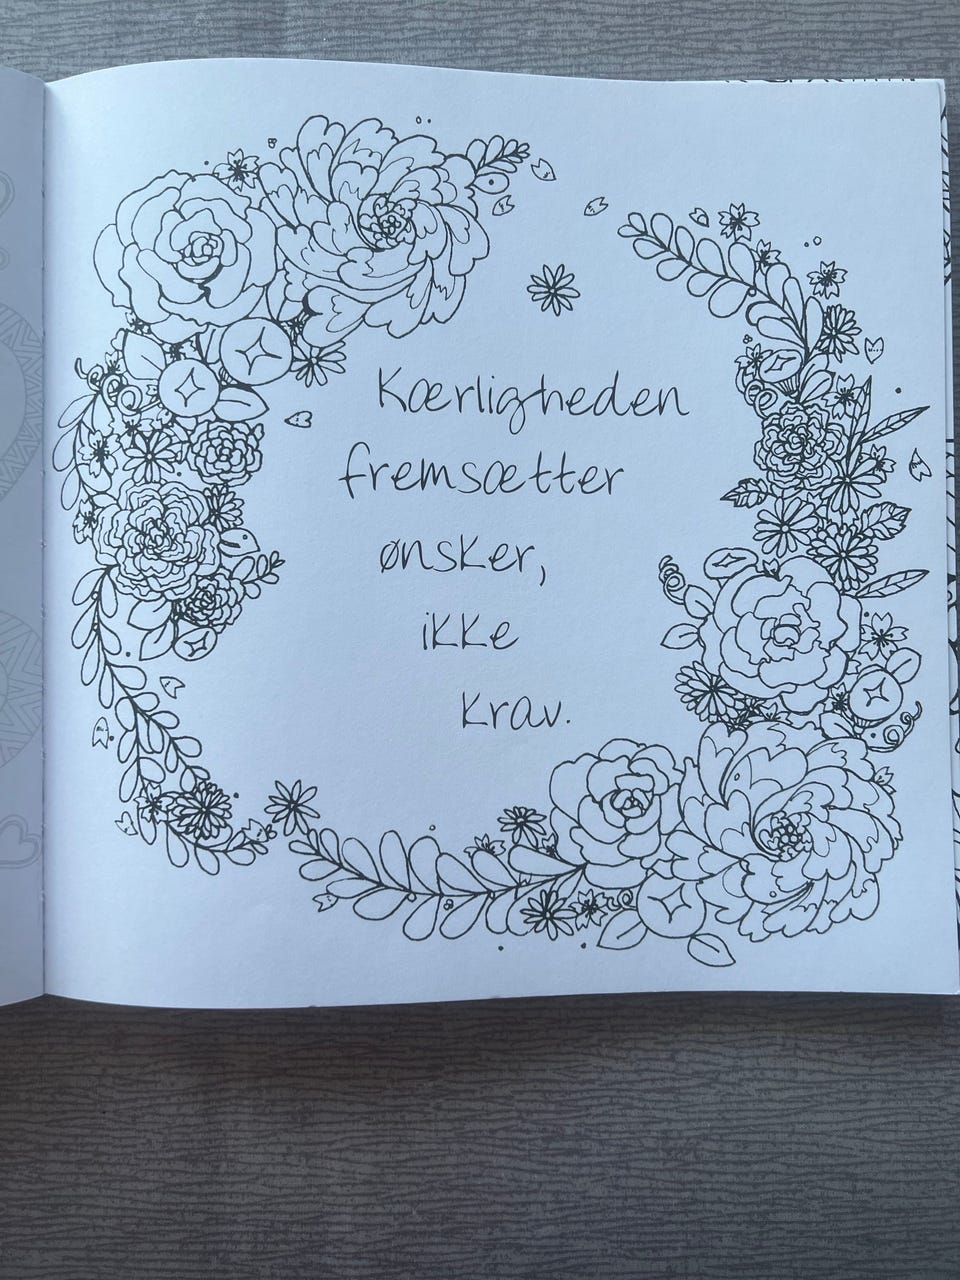 Kærligheden
fremsætter
ønsker,
ikke
krav.